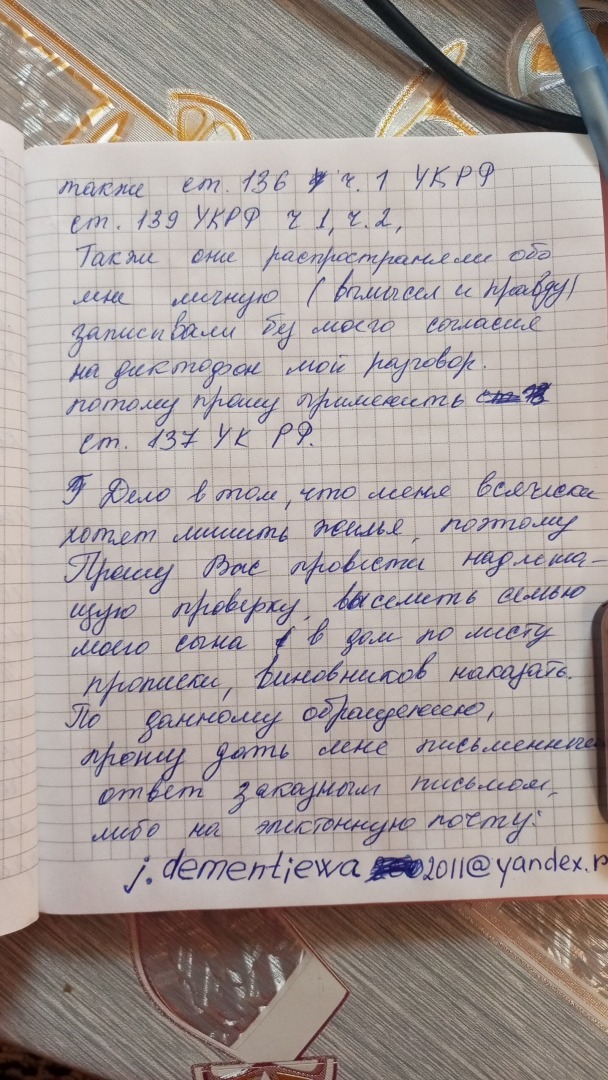 также ст. 136 ч. 1 УК РФ
ст. 139 УКРФ ч 1, ч. 2,
Также они распространяли обо
мне личную (вымысел и правду)
записывали без моего согласия
на диктофон мой разговор.
потому прошу применить
ст. 137 УК РФ.
Дело в том, что меня всячески
хотят лишить жилья, поэтому
Прошу Вас провести надлежа-
щую проверку, выселить семью
моего сына в дом по месту
прописки, виновников наказать.
По данному обращению,
прошу дать мне письменный
ответ заказным письмом,
либо на эктонную почту:
j. dementjewa 2011@yandex.r